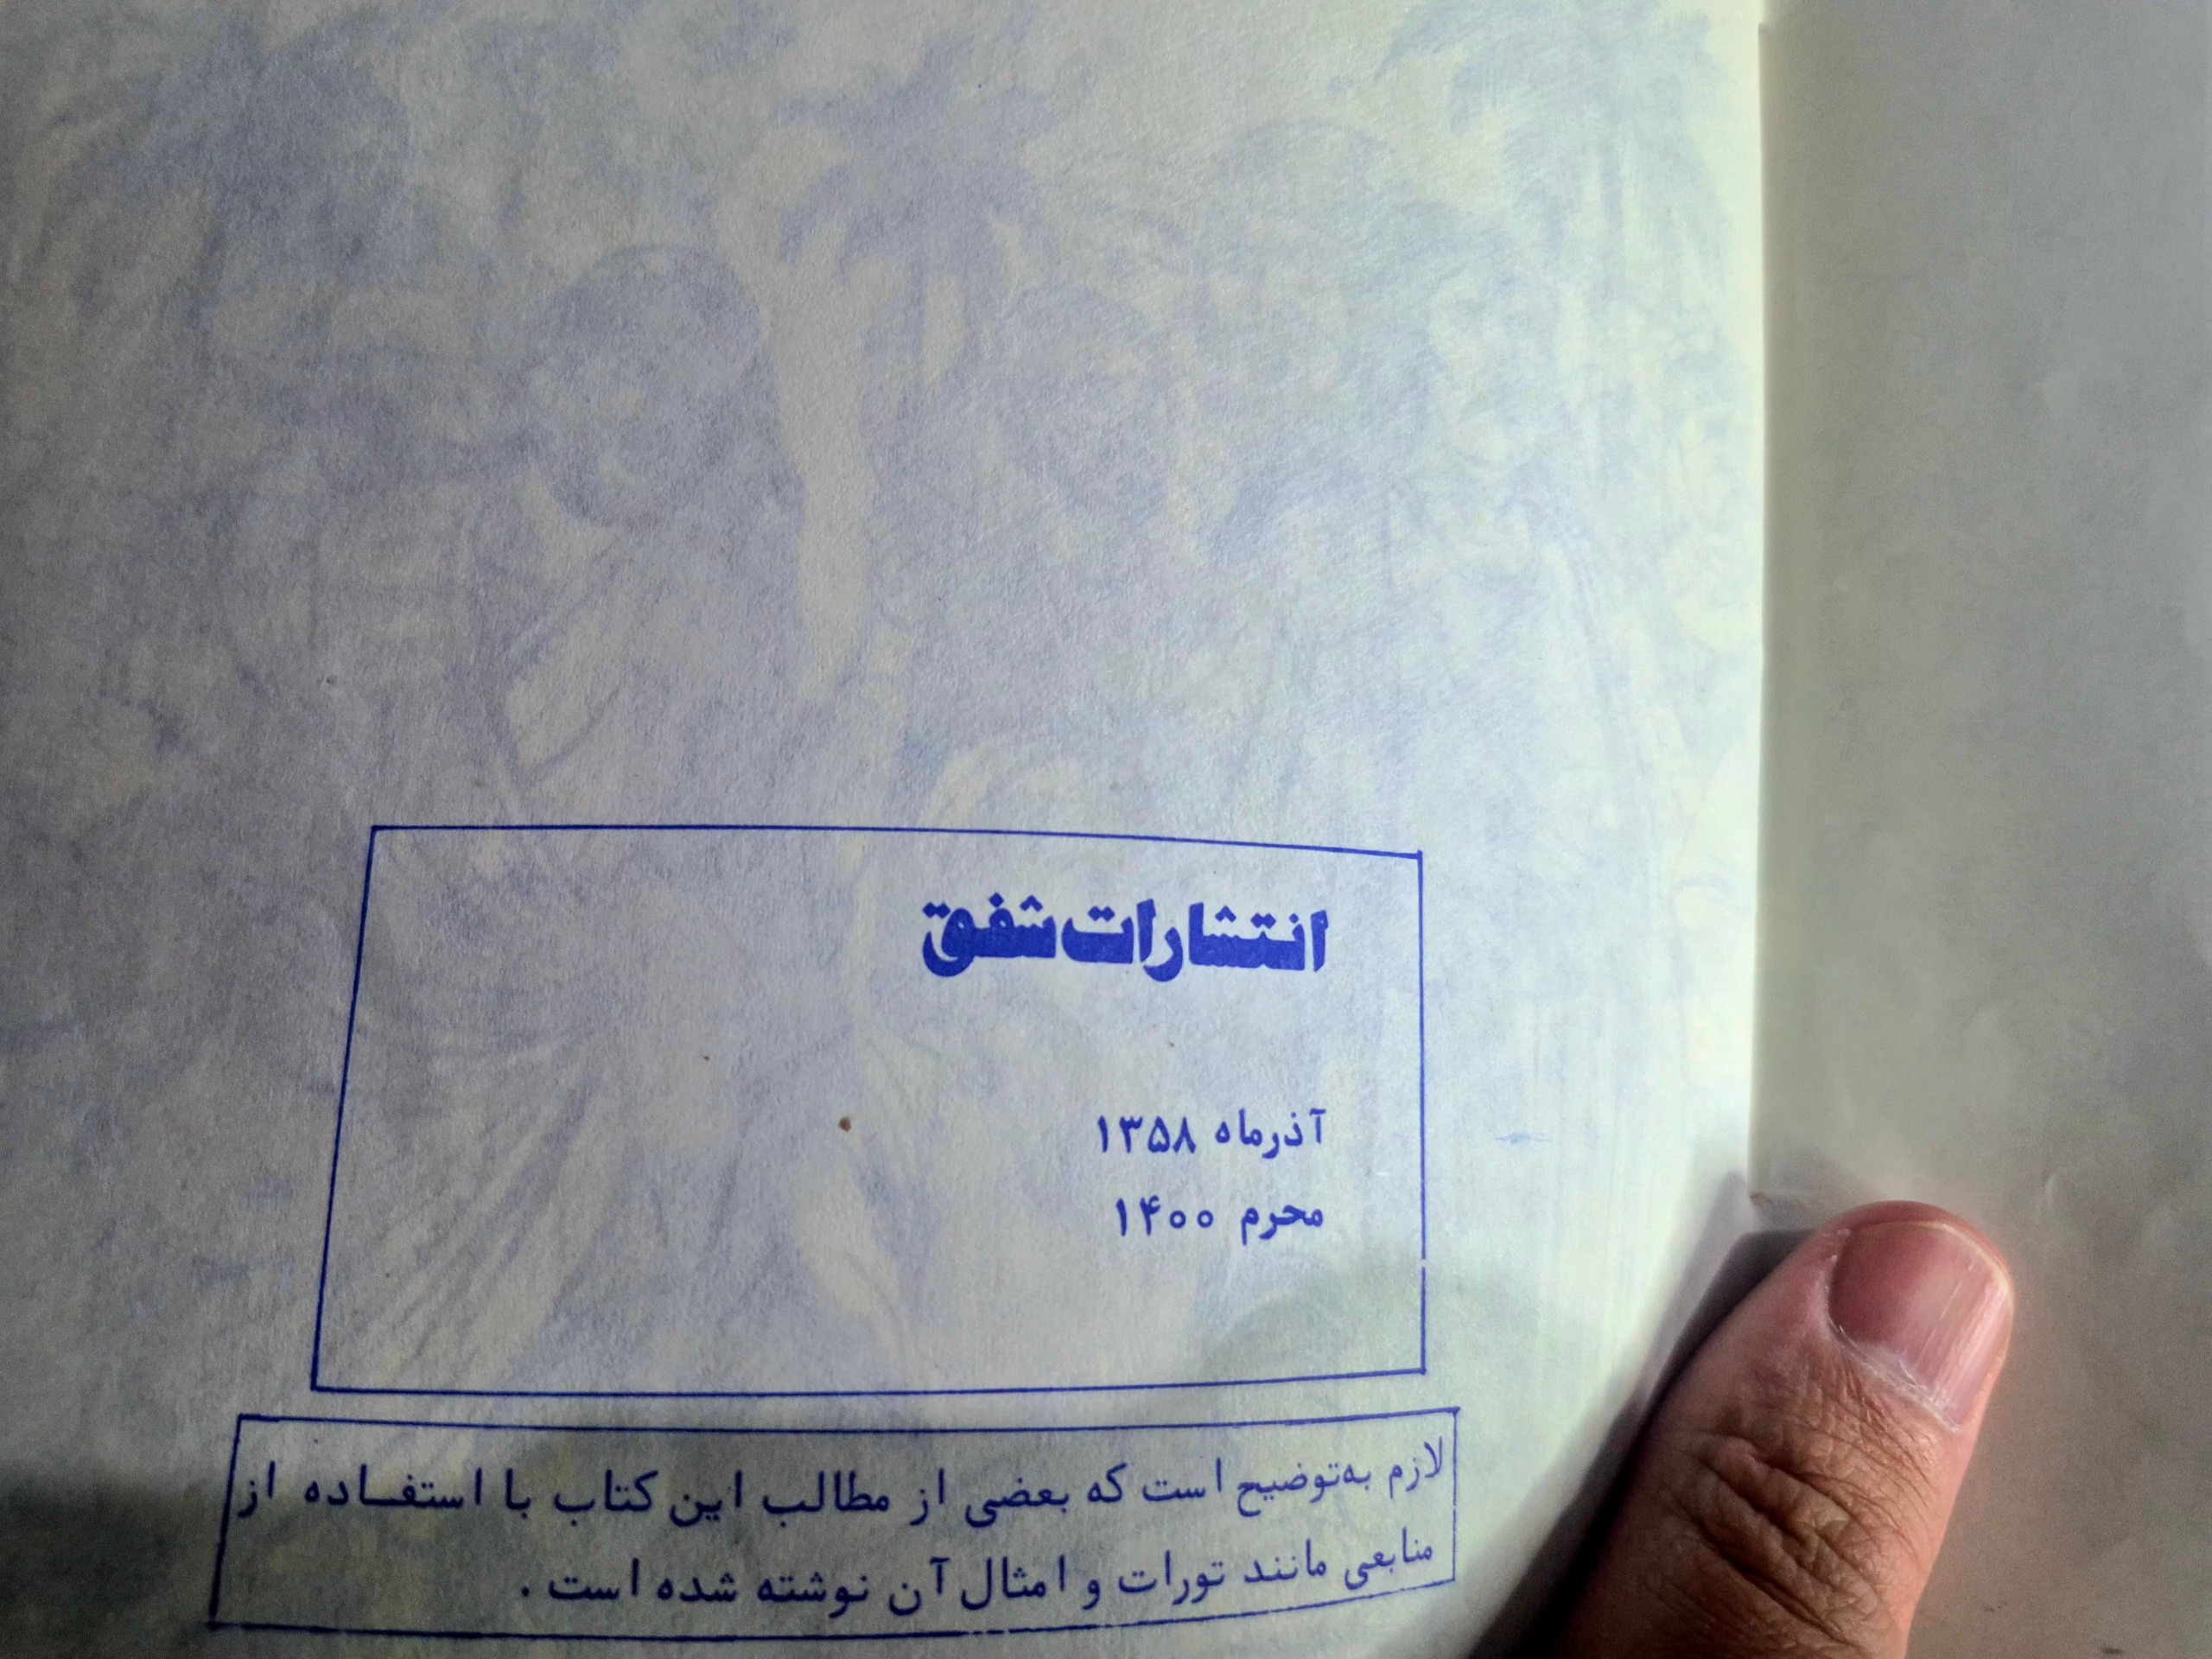 انتشارات شفق
آذرماه ۱۳۵۸
محرم ۱۴۰۰
لازم به‌توضیح است که بعضی از مطالب این کتاب با استفاده از
منابعی مانند تورات و امثال آن نوشته شده است .